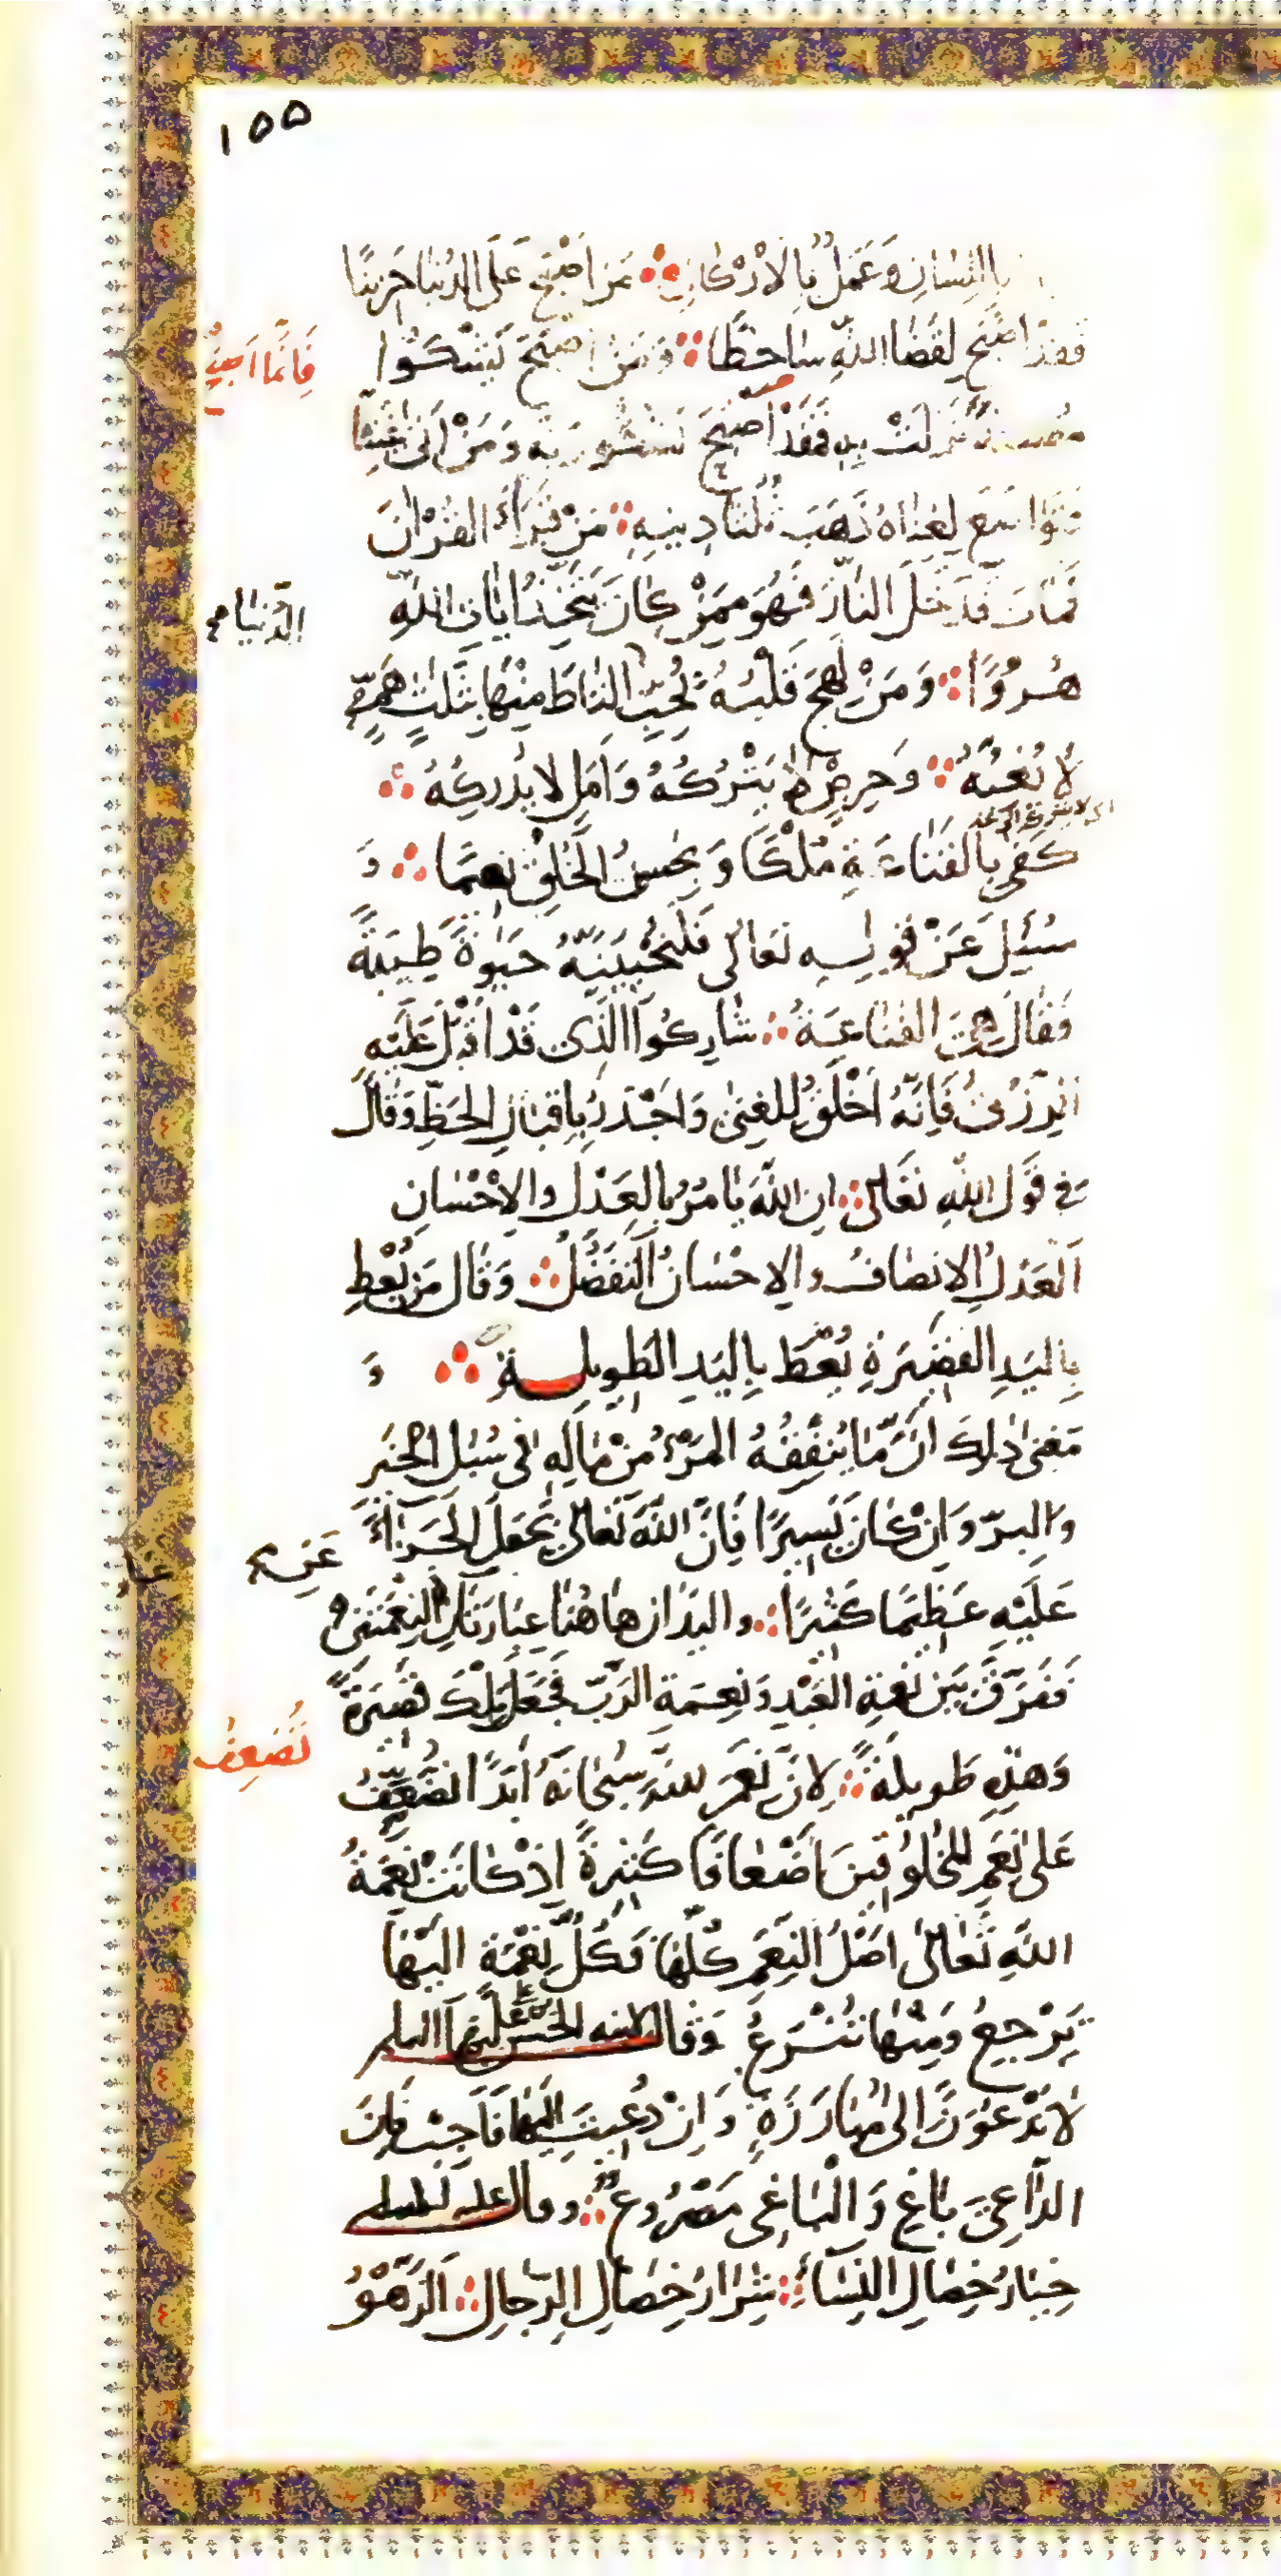 ١٥٥
بِاللِّسَانِ وَعَمَلٌ بِالْاَرْكَانِ مَنْ اَصْبَحَ عَلَى الدُّنْيَا حَزِينًا
فَقَدْ اَصْبَحَ لِقَضَاءِ اللّٰهِ سَاخِطًا وَمَنْ اَصْبَحَ يَشْكُوا
فَاِنَّمَا اَصْبَحَ
مُصِيبَةً نَزَلَتْ بِهِ فَقَدْ اَصْبَحَ يَشْكُو رَبَّهُ وَمَنْ اَتٰى غَنِيًّا
فَتَوَاضَعَ لِغِنَاهُ ذَهَبَ ثُلُثَا دِينِهِ مَنْ قَرَأَ الْقُرْاٰنَ
فَمَاتَ فَدَخَلَ النَّارَ فَهُوَ مِمَّنْ كَانَ يَتَّخِذُ اٰيَاتِ اللّٰهِ
الدُّنْيَا
هُزُوًا وَمَنْ لَهِجَ قَلْبُهُ بِحُبِّ التَاطَ مِنْهَا بِثَلٰثٍ هَمٍّ
لَا يُغِبُّهُ وَحِرْصٍ لَا يَتْرُكُهُ وَاَمَلٍ لَا يُدْرِكُهُ
كَفٰى بِالْقَنَاعَةِ مُلْكًا وَبِحُسْنِ الْخُلْقِ نَعِيمًا وَ
سُئِلَ عَنْ قَوْلِهِ تَعَالٰى فَلَنُحْيِيَنَّهُ حَيٰوةً طَيِّبَةً
فَقَالَ هِيَ الْقَنَاعَةُ شَارِكُوا الَّذِي قَدْ اَقْبَلَ عَلَيْهِ
الرِّزْقُ فَاِنَّهُ اَخْلَقُ لِلْغِنٰى وَاَجْدَرُ بِاِقْبَالِ الْحَظِّ وَقَالَ
فِي قَوْلِ اللّٰهِ تَعَالٰى اِنَّ اللّٰهَ يَاْمُرُ بِالْعَدْلِ وَالْاِحْسَانِ
اَلْعَدْلُ الْاِنْصَافُ وَالْاِحْسَانُ التَّفَضُّلُ وَقَالَ مَنْ يُعْطِ
بِالْيَدِ الْقَصِيرَةِ يُعْطَ بِالْيَدِ الطَّوِيلَةِ وَ
مَعْنٰى ذٰلِكَ اَنَّ مَا يُنْفِقُهُ الْمَرْءُ مِنْ مَالِهِ فِي سُبُلِ الْخَيْرِ
وَالْبِرِّ وَاِنْ كَانَ يَسِيرًا فَاِنَّ اللّٰهَ تَعَالٰى يَجْعَلُ الْجَزَاءَ
عَنِ
عَلَيْهِ عَظِيمًا كَثِيرًا وَالْيَدَانِ هَاهُنَا عِبَارَتَانِ النِّعْمَتَيْنِ
فَفَرَّقَ بَيْنَ نِعْمَةِ الْعَبْدِ وَنِعْمَةِ الرَّبِّ فَجَعَلَ تِلْكَ قَصِيرَةً
تُضَعِفُ
وَهٰذِهِ طَوِيلَةً لِاَنَّ نِعَمَ اللّٰهِ سُبْحَانَهُ اَبَدًا تُضَعَّفُ
عَلٰى نِعَمِ الْمَخْلُوقِينَ اَضْعَافًا كَثِيرَةً اِذْ كَانَتْ نِعْمَةُ
اللّٰهِ تَعَالٰى اَصْلَ النِّعَمِ كُلِّهَا فَكُلُّ نِعْمَةٍ اِلَيْهَا
تَرْجِعُ وَمِنْهَا تَنْزِعُ وَقَالَ لابنه الحسن عَلَيْهِمَا السلم
لَا تَدْعُوَنَّ اِلٰى مُبَارَزَةٍ وَاِنْ دُعِيتَ اِلَيْهَا فَاَجِبْ فَاِنَّ
الدَّاعِيَ بَاغٍ وَالْبَاغِي مَصْرُوعٌ وقال عليه السلم
خِيَارُ خِصَالِ النِّسَاءِ شِرَارُ خِصَالِ الرِّجَالِ اَلزَّهْوُ